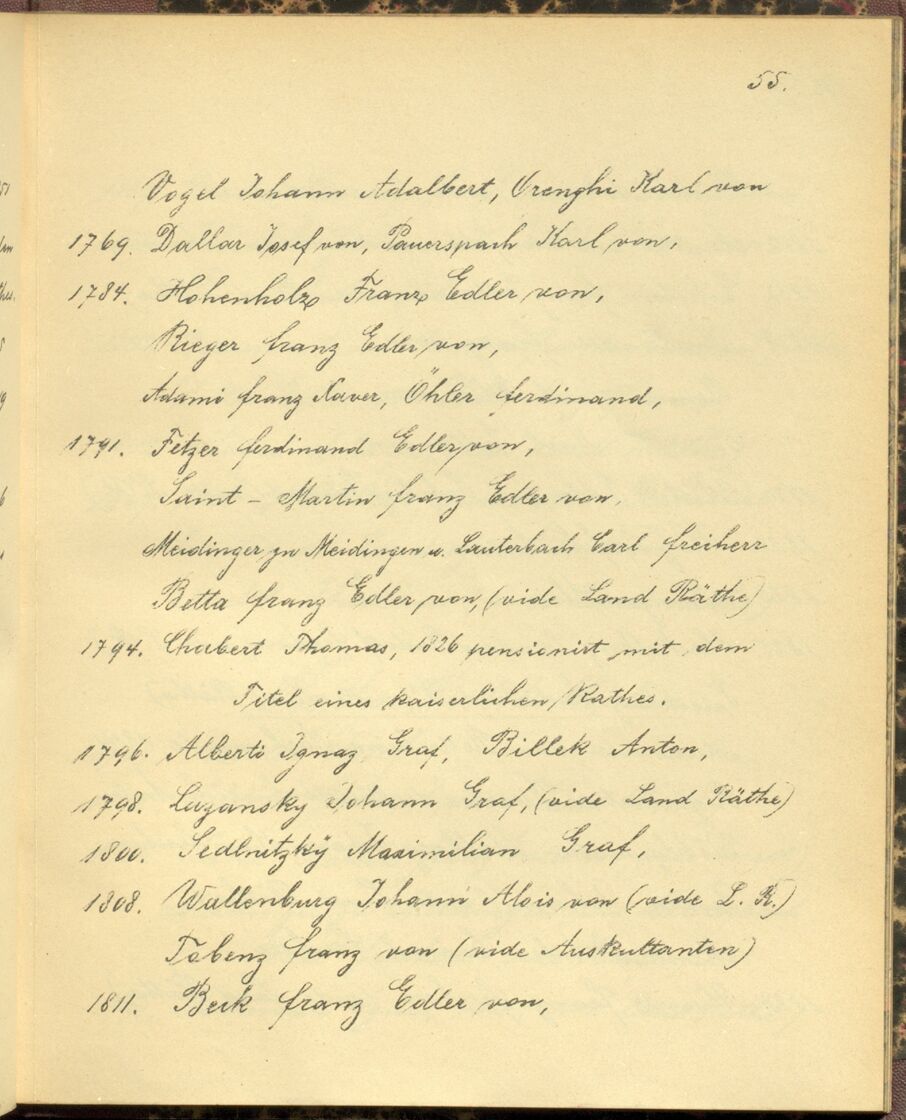 55.
Vogel Johann Adalbert, Orenghi Karl von
1769. Dallar Josef von, Pauerspach Karl von,
1784. Hohenholz Franz Edler von,
Rieger franz Edler von,
Adami franz Xaver, Öhler ferdinand,
1791. Fetzer ferdinand Edler von,
Saint - Martin franz Edler von,
Meidinger zu Meidingen u. Lauterbach Carl freiherr
Betta franz Edler von, (vide Land Räthe)
1794. Chabert Thomas, 1826 pensionirt mit dem
Titel eines kaiserlichen Rathes.
1796. Alberti Ignaz Graf, Billek Anton,
1798. Lazansky Johann Graf, (vide Land Räthe)
1800. Sedlnitzkÿ Maximilian Graf,
1808. Wallenburg Johann Alois von (vide L. R.)
Tobenz franz von (vide Auskultanten)
1811. Beck franz Edler von,